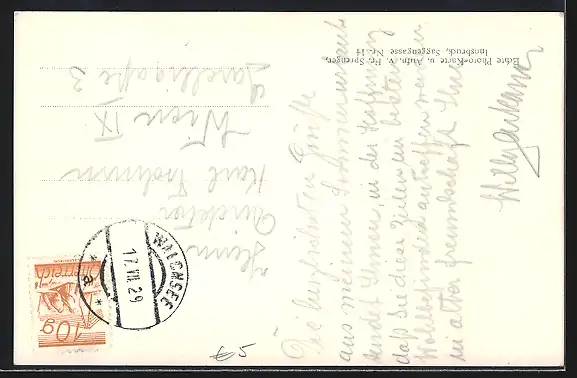 Die herzlichsten Grüße
aus meinem Sommerurlaub
sendet Ihnen, in der Hoffnung
daß Sie diese Zeilen im besten
Wohlbefinden antreffen werden
in alter Freundschaft Ihr
Echte Photo-Karte u. Aufn. v. Fr. Sprenger,
Innsbruck, Saggengasse Nr. 14
Herrn
Direktor
Karl
Wien IX
3
WALCHSEE
17.VIII.29
* a *
Österreich
10g
€5